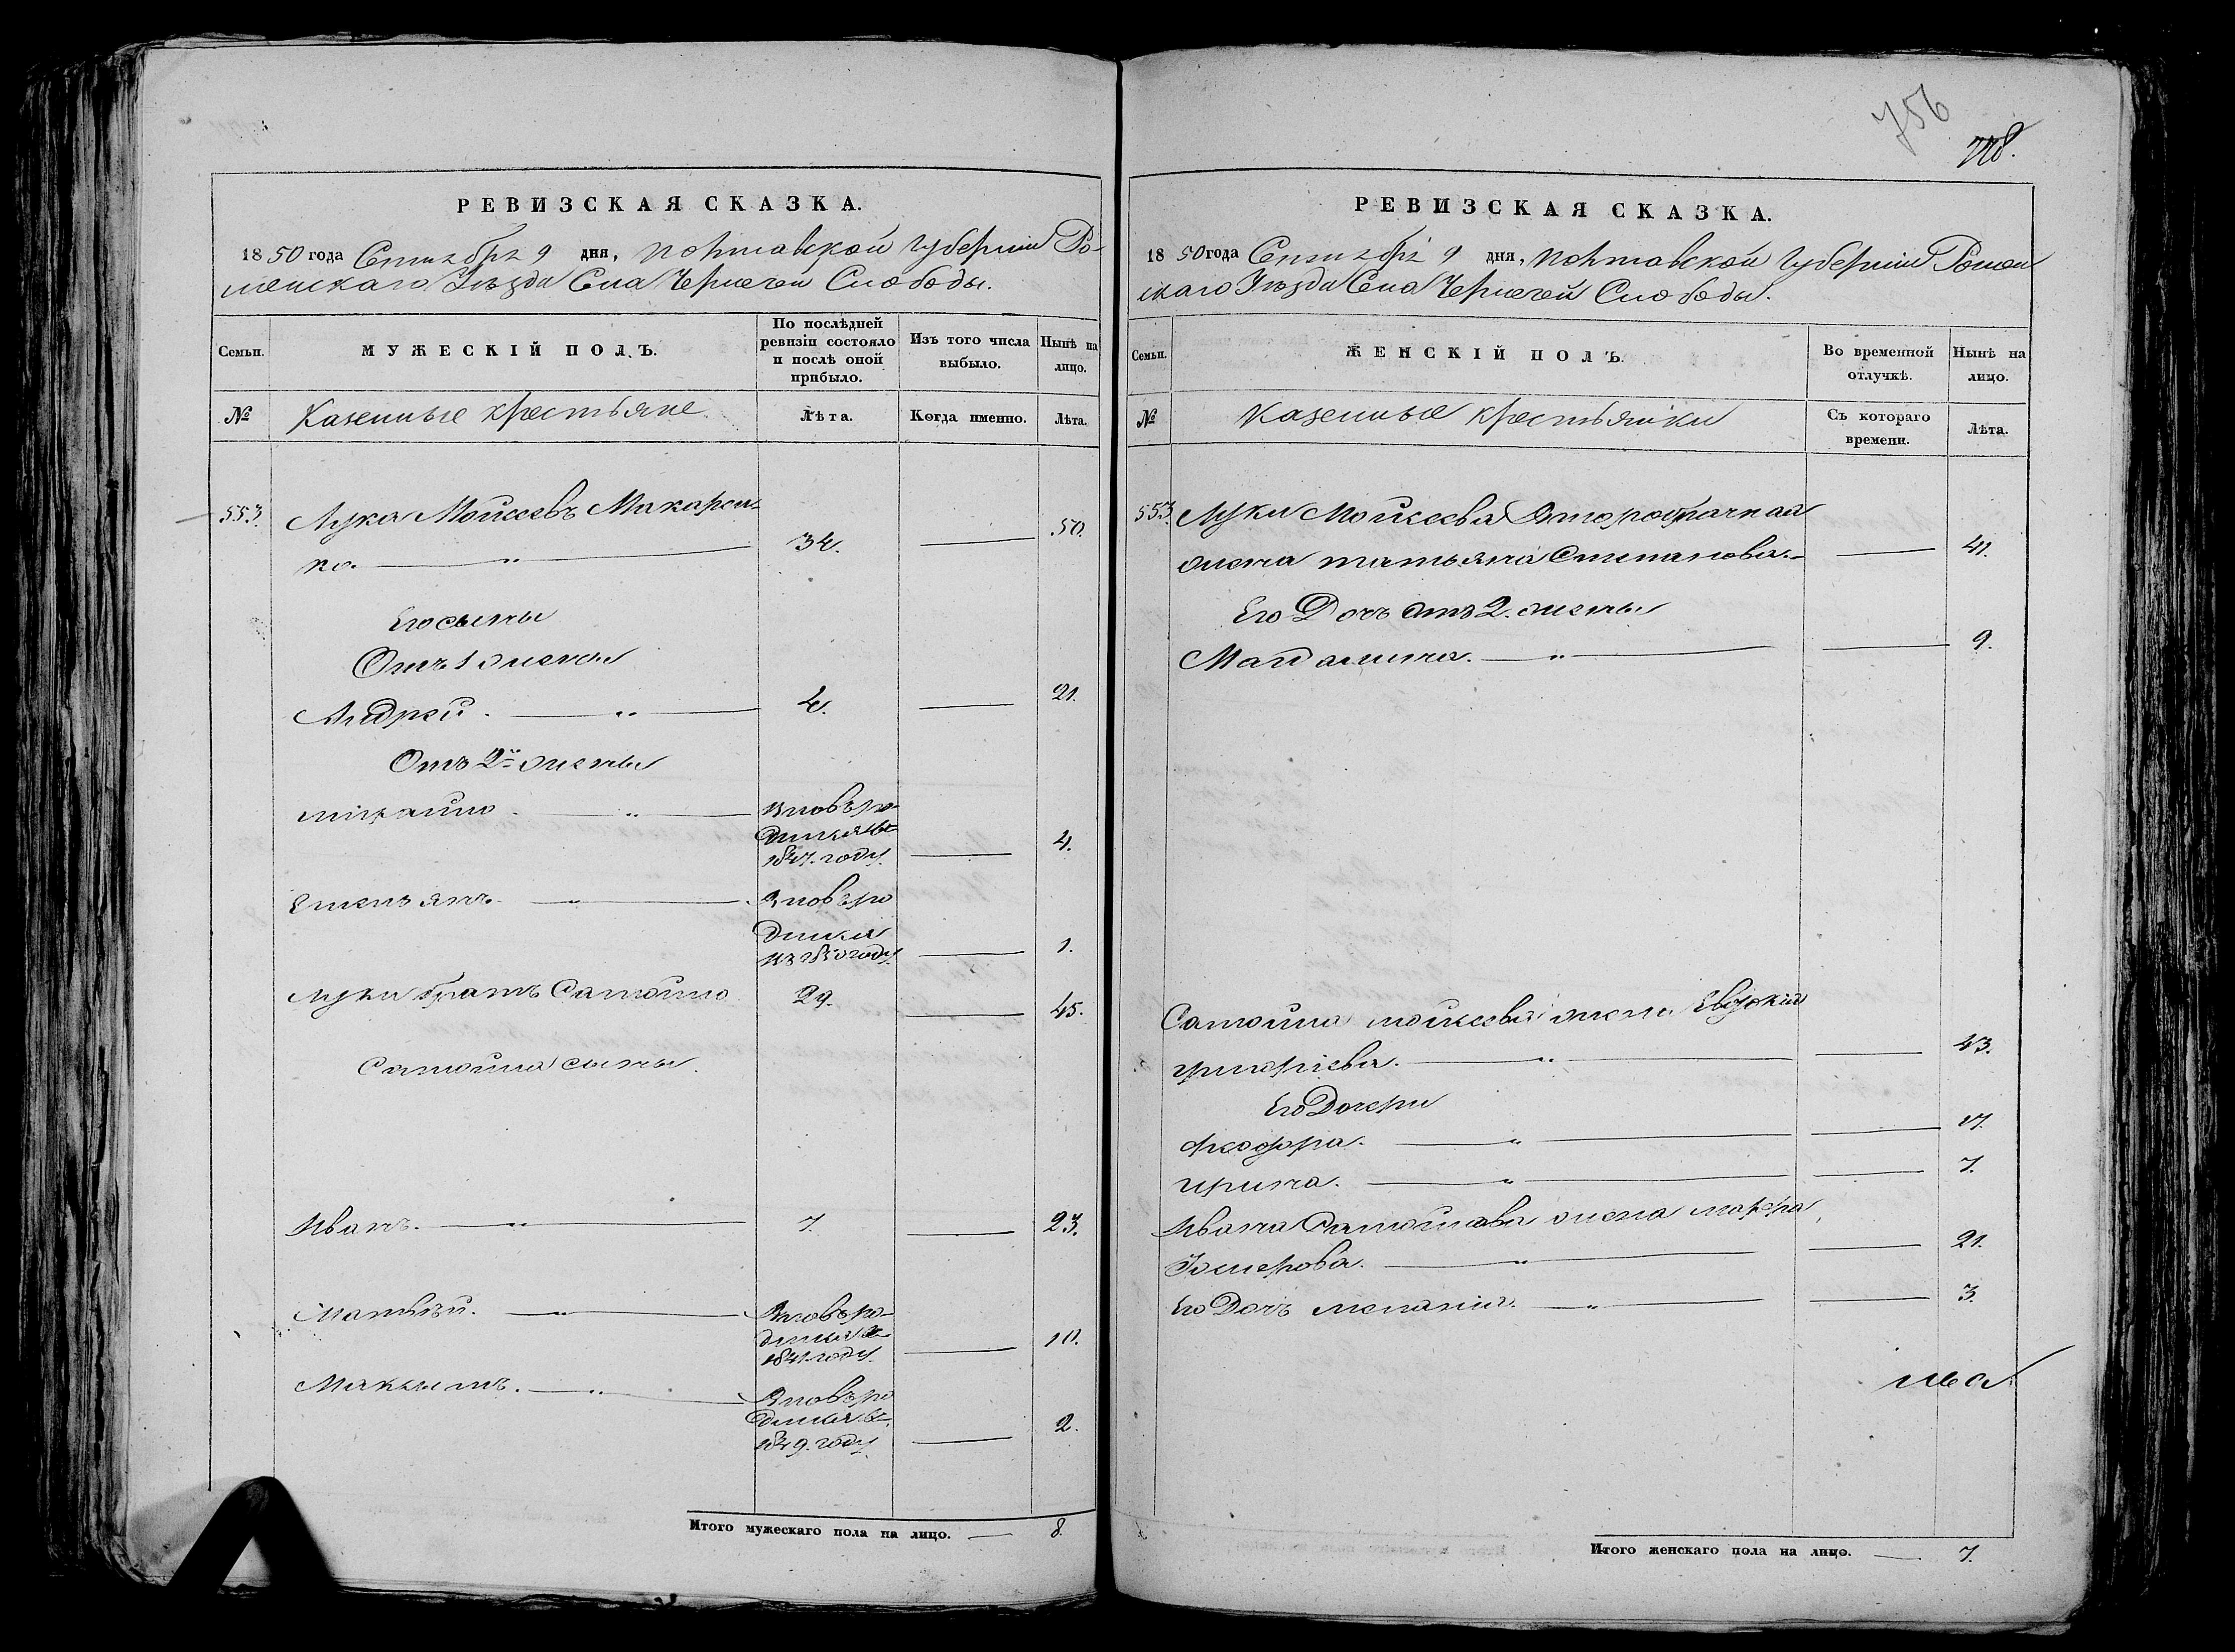 756
778.
РЕВИЗСКАЯ СКАЗКА.
1850 года Сентября 9 дня, Полтавской губернии Ро-
менскаго Уезда Села Чернечей Слободы.
Семьи.
МУЖЕСКІЙ ПОЛЪ.
По послѣдней ревизіи состояло и послѣ оной прибыло.
Изъ того числа выбыло.
Нынѣ на лицо.
№
Казенные крестьяне.
Лѣта.
Когда именно.
Лѣта.
553. Лука Моисеевъ Макарен-
ко. 34. 50.
Его сыны
Отъ 1 жены
Андрей. 4. 21.
Отъ 2й жены
Михайло Вновь ро-
дился в
1847. году. 4.
Емельянъ. Вновь ро
дился
въ 1850 году. 1.
Луки братъ Самойло 29. 45.
Самойла сыны.
Иванъ. 7. 23.
Матвѣй. Вновь ро-
дился в
1841 году. 10.
Максимъ. Вновь ро
дился в
1849. году. 2.
Итого мужескаго пола на лицо. 8.
РЕВИЗСКАЯ СКАЗКА.
1850 года Сентября 9 дня, Полтавской Губерніи Ромен
скаго Уезда Села Чернечей Слободы.
Семьи.
ЖЕНСКІЙ ПОЛЪ.
Во временной отлучкѣ.
Нынѣ на лицо.
№
Казенные крестьянки
Съ котораго времени.
Лѣта.
553. Луки Моисеева Второбрачная
жена татьяна Степанова. 41.
Его Дочь отъ 2. жены
Магдалина. 9.
Самойла моисеева жена Евдокия
григорiева. 43.
Его Дочери
феодора. 17.
ирина. 7.
Ивана Самойлова жена марфа
21.
Его Дочь меланiя. 3.
Итого женскаго пола на лицо. 7.